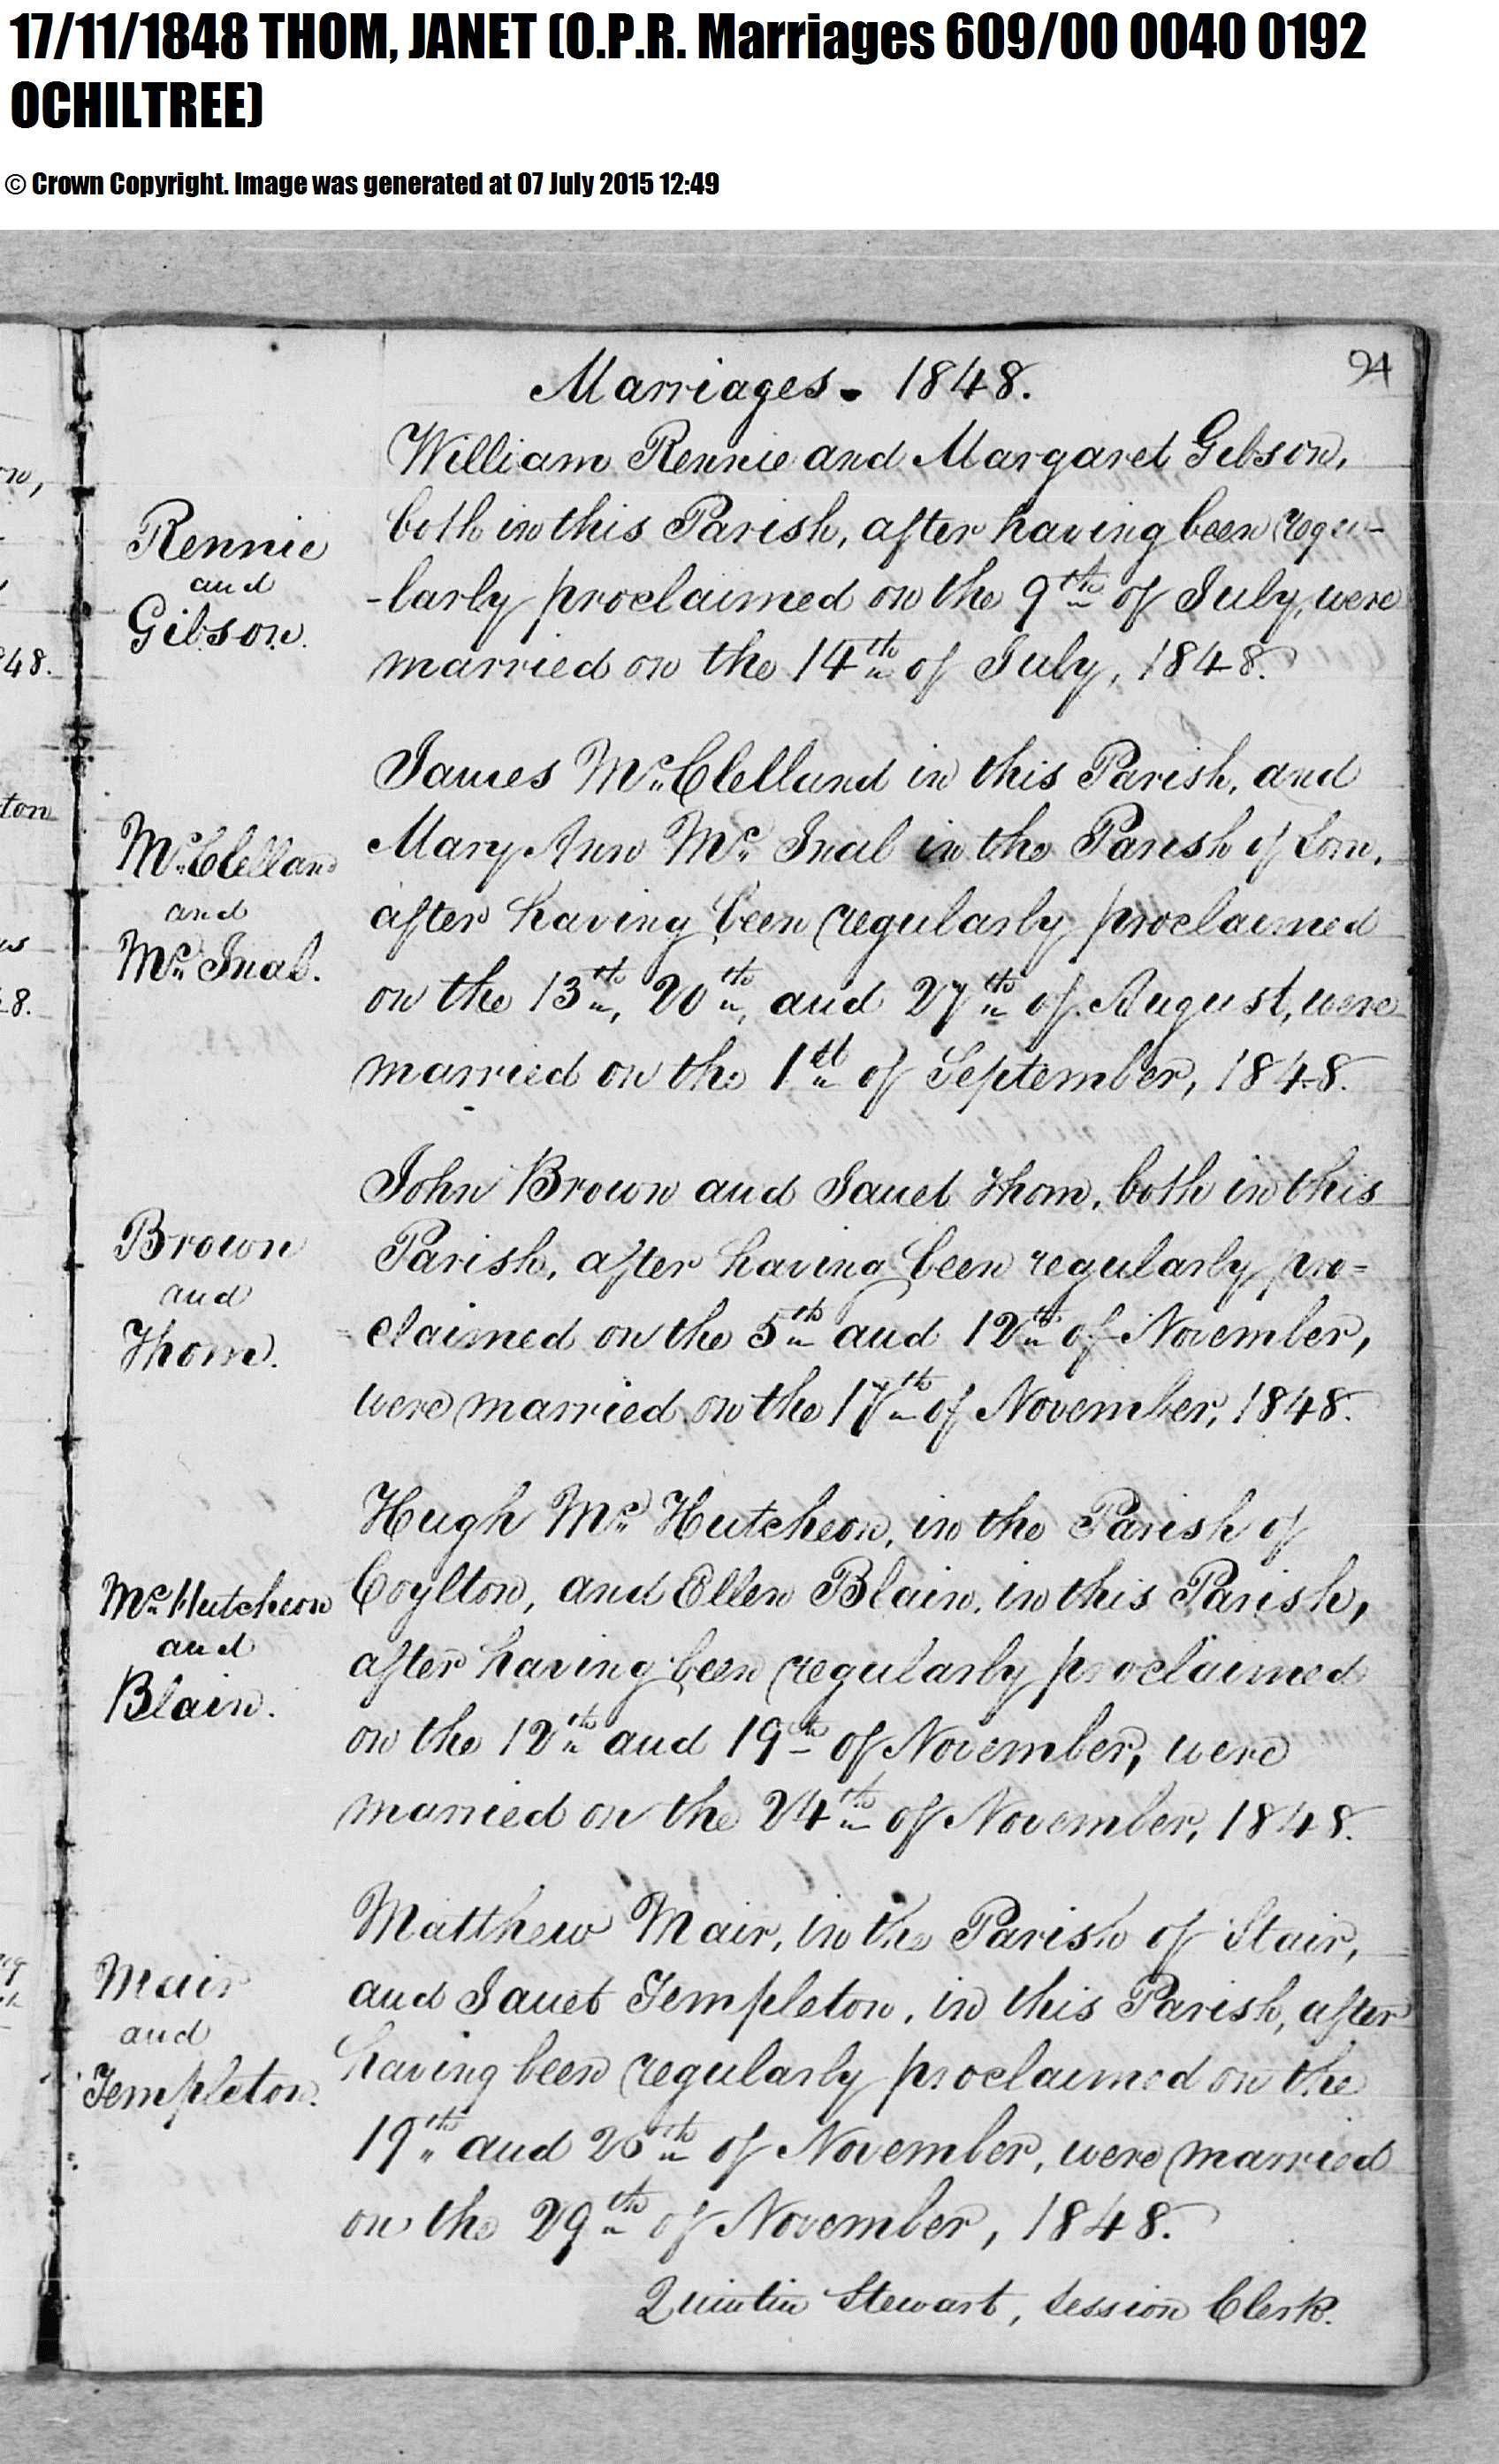 17/11/1848 THOM, JANET (O.P.R. Marriages 609/00 0040 0192
OCHILTREE)
© Crown Copyright. Image was generated at 07 July 2015 12:49
94
Marriages. 1848.
Rennie
and
Gibson.
William Rennie and Margaret Gibson,
both in this Parish, after having been regu-
-larly proclaimed on the 9th of July, were
married on the 14th of July, 1848.
McClelland
and
Mc Inal.
James McClelland in this Parish, and
Mary Ann Mc Inal in the Parish of Sorn,
after having been regularly proclaimed
on the 13th, 20th, and 27th of August, were
married on the 1st of September, 1848.
Brown
and
Thom.
John Brown and Janet Thom, both in this
Parish, after having been regularly pro=
=claimed on the 5th and 12th of November,
were married on the 17th of November, 1848.
Mc Hutcheon
and
Blain.
Hugh Mc Hutcheon, in the Parish of
Coylton, and Ellen Blain, in this Parish,
after having been regularly proclaimed
on the 12th and 19th of November, were
married on the 24th of November, 1848.
Mair
and
Templeton.
Matthew Mair, in the Parish of Stair,
and Janet Templeton, in this Parish, after
having been regularly proclaimed on the
19th and 26th of November, were married
on the 29th of November, 1848.
Quintin Stewart, Session Clerk.